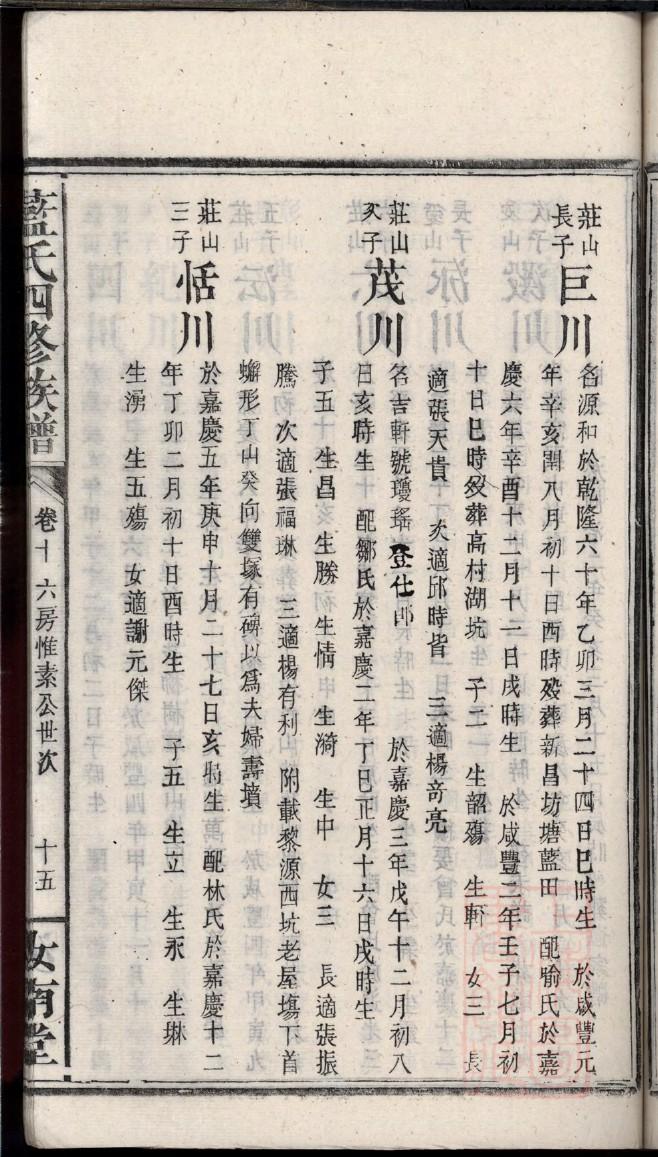 莊山長子 巨川
名源和於乾隆六十年乙卯三月二十四日巳時生 於咸豐元
年辛亥閏八月初十日酉時歿葬新昌坊塘藍田 配喻氏於嘉
慶六年辛酉十二月十一日戌時生 於咸豐二年壬子七月初
十日巳時歿葬高村湖坑 子二 生韶殤 生軒 女三 長
適張天貴 次適邱時省 三適楊奇亮
莊山次子 茂川
名吉軒號瓊瑤登仕郎 於嘉慶三年戊午十二月初八
日亥時生 配鄒氏於嘉慶二年丁巳正月十六日戌時生
子五 生昌 生勝 生情 生漪 生中 女三 長適張振
騰 次適張福琳 三適楊有利 附載黎源西坑老屋塲下首
蠏形丁山癸向雙塚有碑以爲夫婦壽墳
莊山三子 恬川
於嘉慶五年庚申十月二十七日亥時生 配林氏於嘉慶十二
年丁卯二月初十日酉時生 子五 生立 生永 生琳
生湧 生五殤 女適謝元傑
藍氏四修族譜
卷十 六房惟素公世次
十五
汝南堂